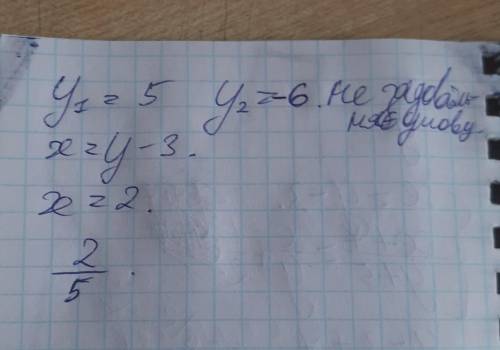 y₁ = 5 y₂ = -6. не задоволь-
няє умову.
x = y - 3.
x = 2.
2/5.